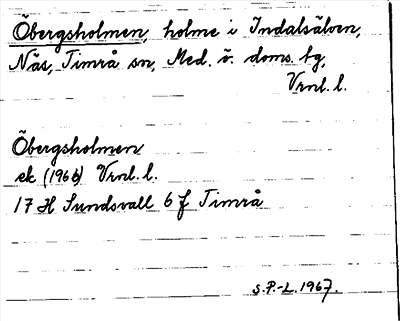 Öbergsholmen, holme i Indalsälven,
Näs, Timrå sn, Med. ö. doms. tg,
Vrnl. l.
Öbergsholmen
ek (1966) Vrnl. l.
17 H Sundsvall 6 f Timrå
S.P.-L. 1967.